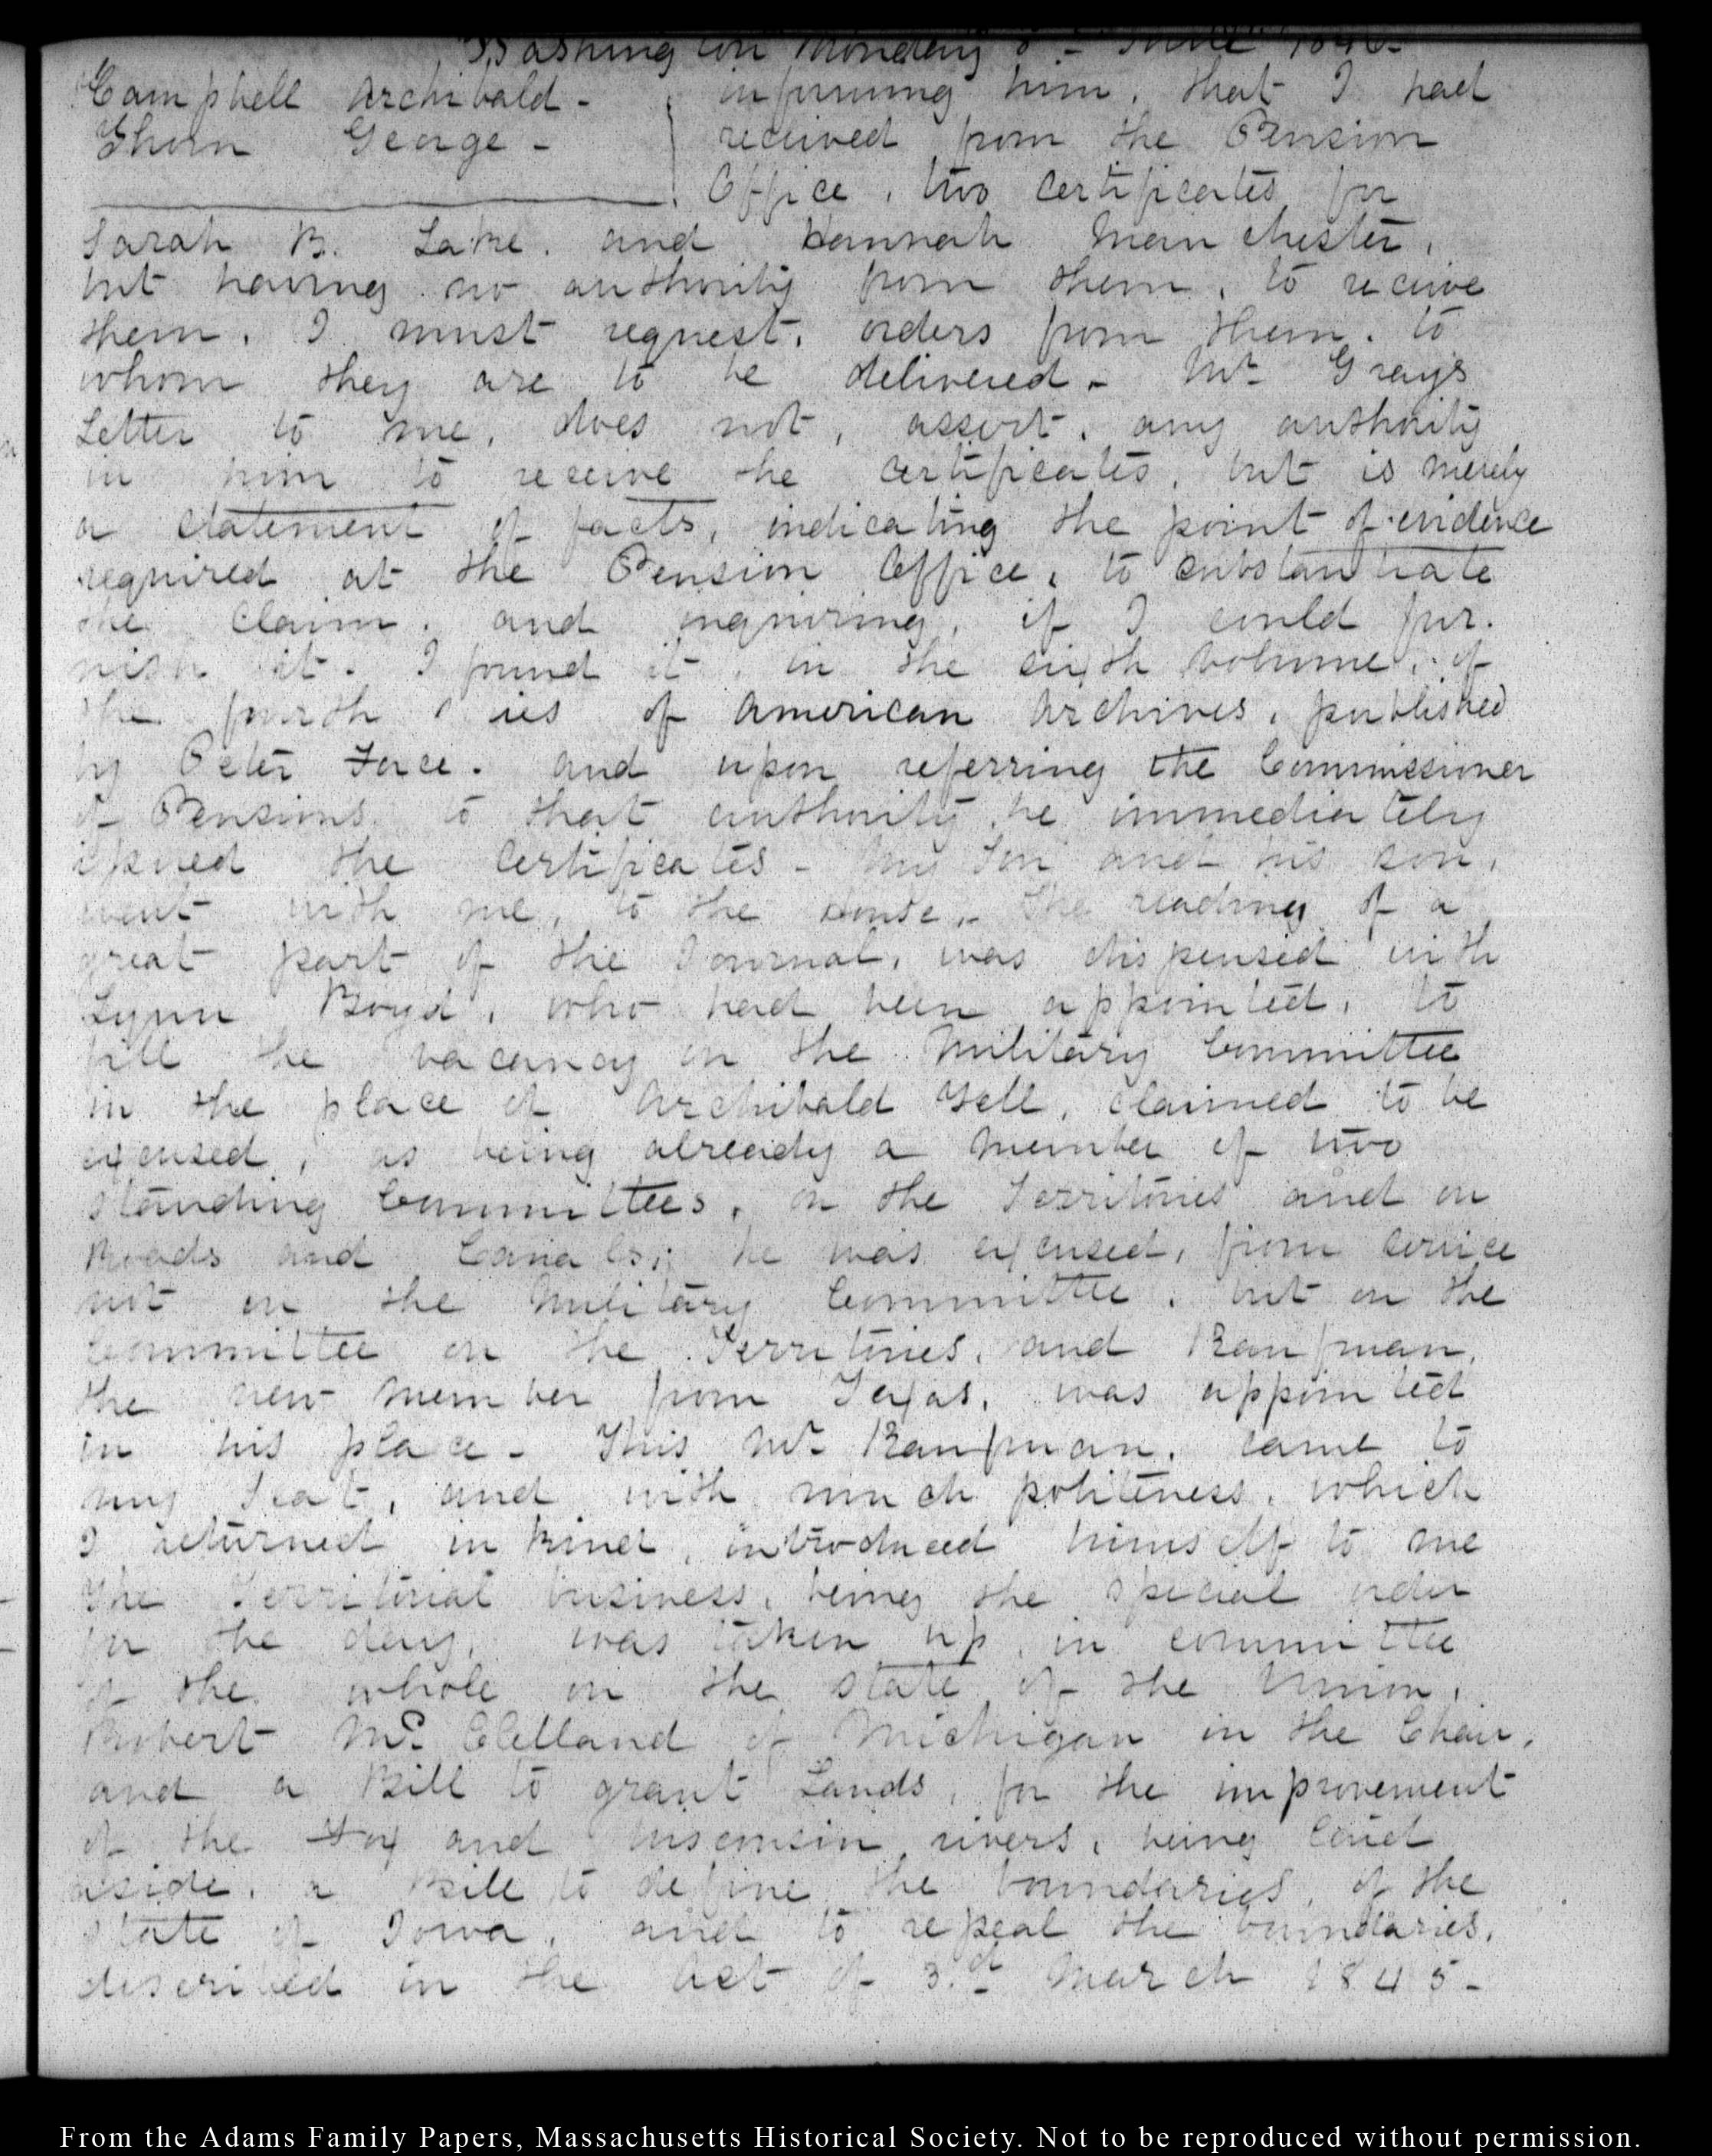 Washington Monday 8th June 1846-
Campbell Archibald -
Thorn George -
informing him, that I had
received from the Pension
Office, two certificates for
Sarah B. Lake, and Hannah Manchester,
but having no authority from them, to receive
them, I must request, orders from them, to
whom they are to be delivered - Mr. Gray's
Letter to me, does not, assert, any authority
in him to receive the certificates, but is merely
a statement of facts, indicating the point of evidence
required at the Pension Office, to substantiate
the claim, and inquiring, if I could fur-
nish it. I found it, in the sixth volume, of
the fourth of American Archives, published
by Peter Force. and upon referring the Commissioner
of Pensions to that authority he immediately
issued the certificates - My Son and his son,
went with me, to the House. The reading of a
great part of the Journal, was dispensed with
Lynn Boyd, who had been appointed, to
fill the vacancy on the Military Committee
in the place of Archibald Yell, claimed to be
excused, as being already a member of two
standing Committees, on the Territories and on
Roads and Canals; he was excused, from service
not on the Military Committee, but on the
Committee on the Territories, and Kaufman,
the new member from Texas, was appointed
in his place - This Mr. Kaufman, came to
my Seat, and with much politeness, which
I returned in kind, introduced himself to me
The Territorial business, being the special order
for the day, was taken up, in committee
of the whole on the state of the Union,
Robert McClelland of Michigan in the Chair,
and a Bill to grant Lands, for the improvement
of the Fox and Wisconsin rivers, being laid
aside, a Bill to define the boundaries, of the
State of Iowa, and to repeal the boundaries,
described in the Act of 3.d March 1845-
From the Adams Family Papers, Massachusetts Historical Society. Not to be reproduced without permission.